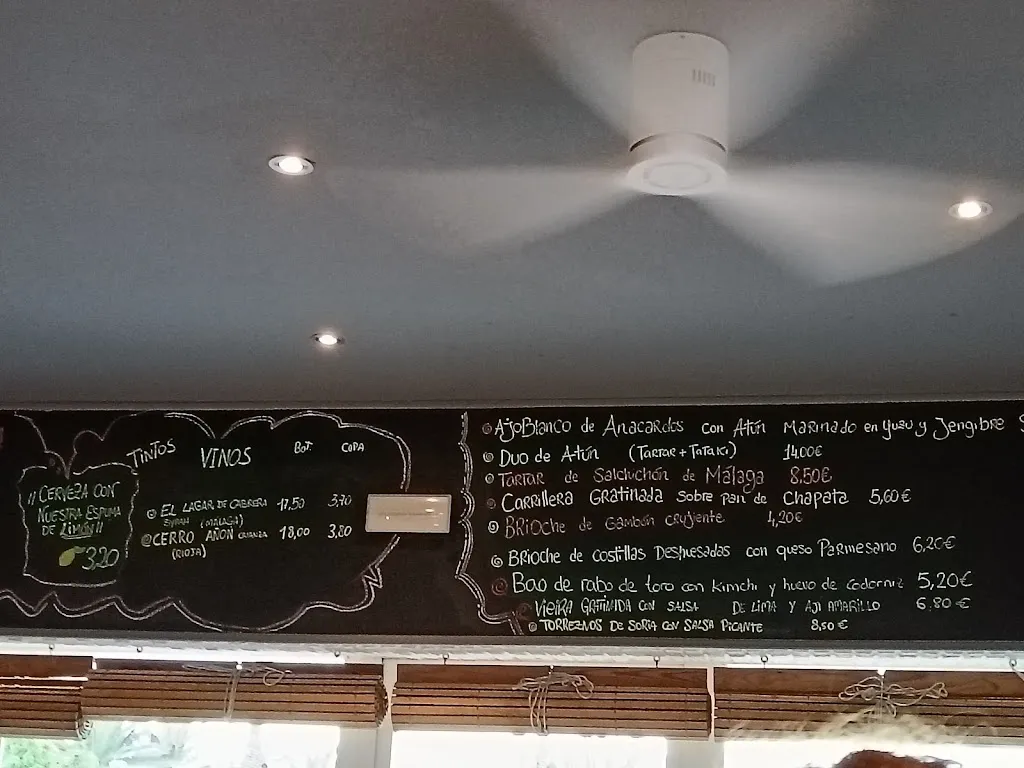 ¡¡CERVEZA CON
NUESTRA ESPUMA
DE LIMÓN!!
3,20
TINTOS VINOS BOT. COPA
EL LAGAR DE CABRERA 17,50 3,70
SYRAH (MÁLAGA)
CERRO AÑON CRIANZA 18,00 3,80
(RIOJA)
AJoBlanco de Anacardos con Atún Marinado en yuzu y Jengibre
Duo de Atún (Tartar + Tataki) 14,00€
Tartar de Salchichón de Málaga 8,50€
Carrillera Gratinada Sobre pan de Chapata 5,60€
BRioche de Gambón crujiente 4,20€
BRioche de costillas Deshuesadas con queso Parmesano 6,20€
Bao de rabo de toro con Kimchi y huevo de codorniz 5,20€
VIEIRA GRATINADA CON SALSA DE LIMA Y AJI AMARILLO 6,80€
TORREZNOS DE SORIA CON SALSA PICANTE 8,50€